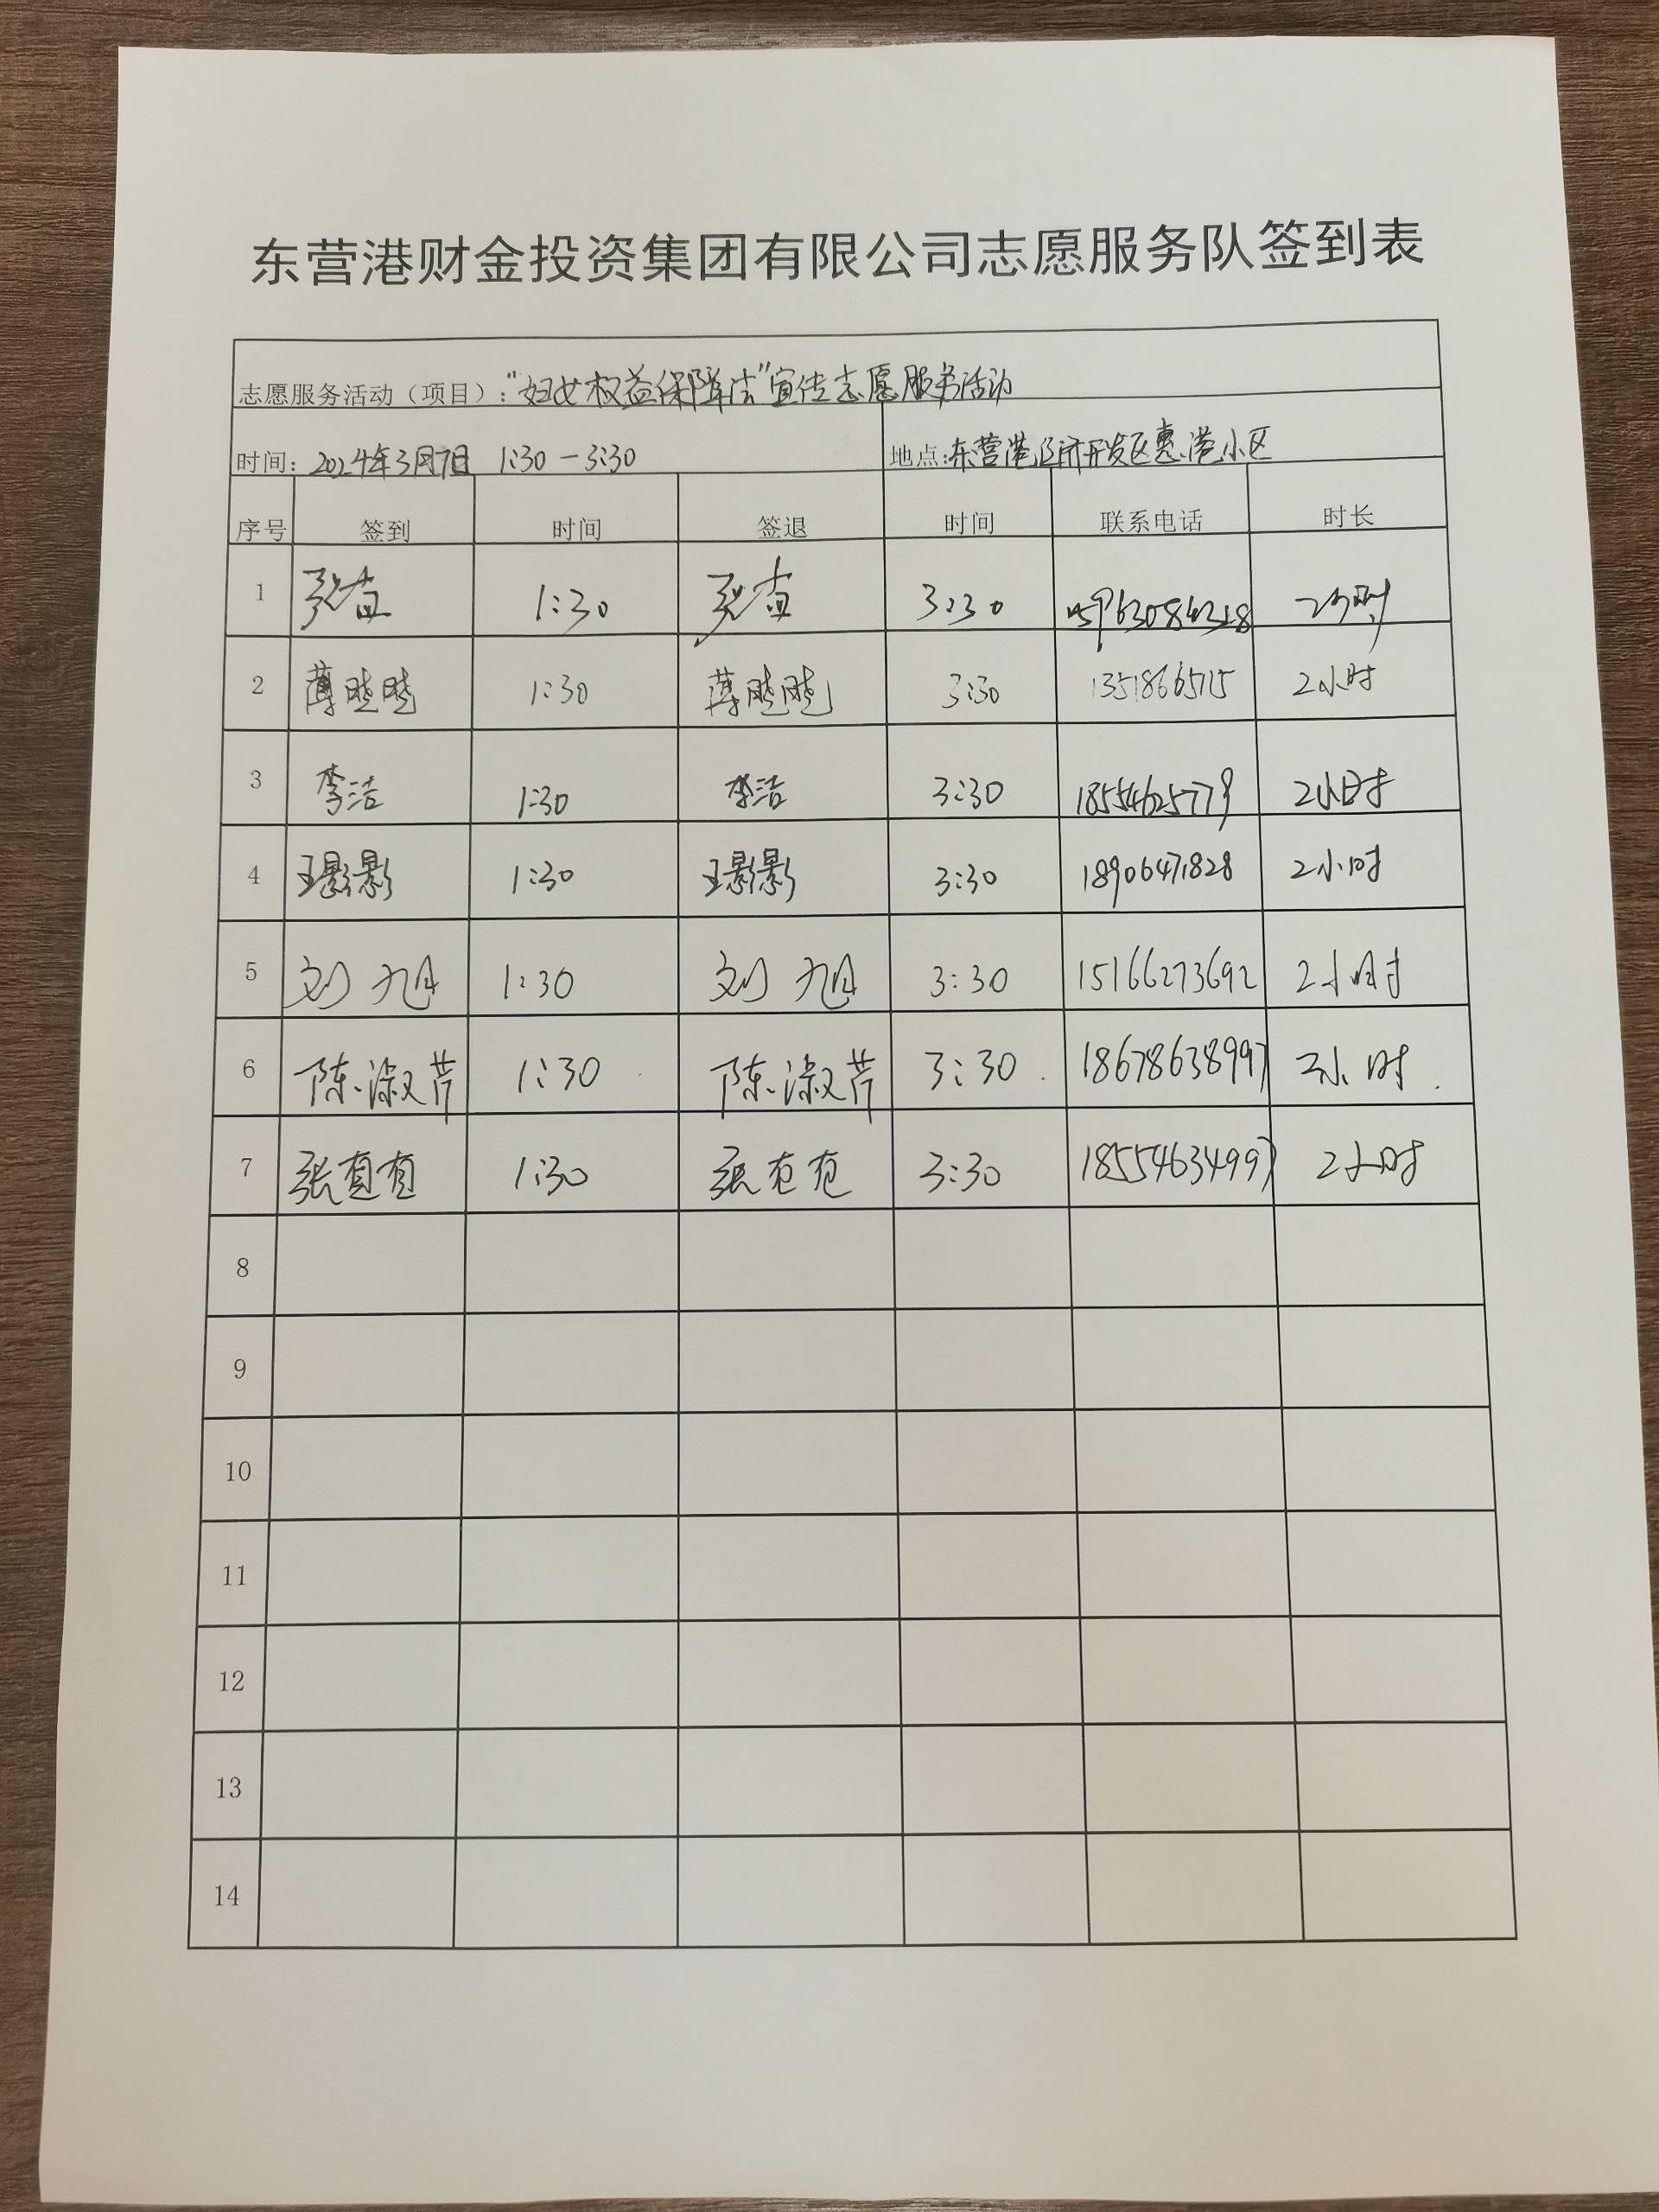 东营港财金投资集团有限公司志愿服务队签到表
志愿服务活动（项目）：“妇女权益保障法”宣传志愿服务活动
时间：2024年3月7日 1:30－3:30 地点：东营港经济开发区惠港小区
序号 签到 时间 签退 时间 联系电话 时长
1 1:30 3:30 2小时
2 薄 1:30 薄 3:30 2小时
3 李洁 1:30 李洁 3:30 18554625779 2小时
4 王影影 1:30 王影影 3:30 2小时
5 刘旭 1:30 刘旭 3:30 15166273692 2小时
6 陈淑芹 1:30 陈淑芹 3:30 18678638997 2小时
7 张 1:30 张 3:30 18554634997 2小时
8
9
10
11
12
13
14